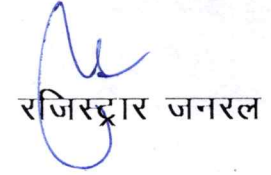 रजिस्ट्रार जनरल